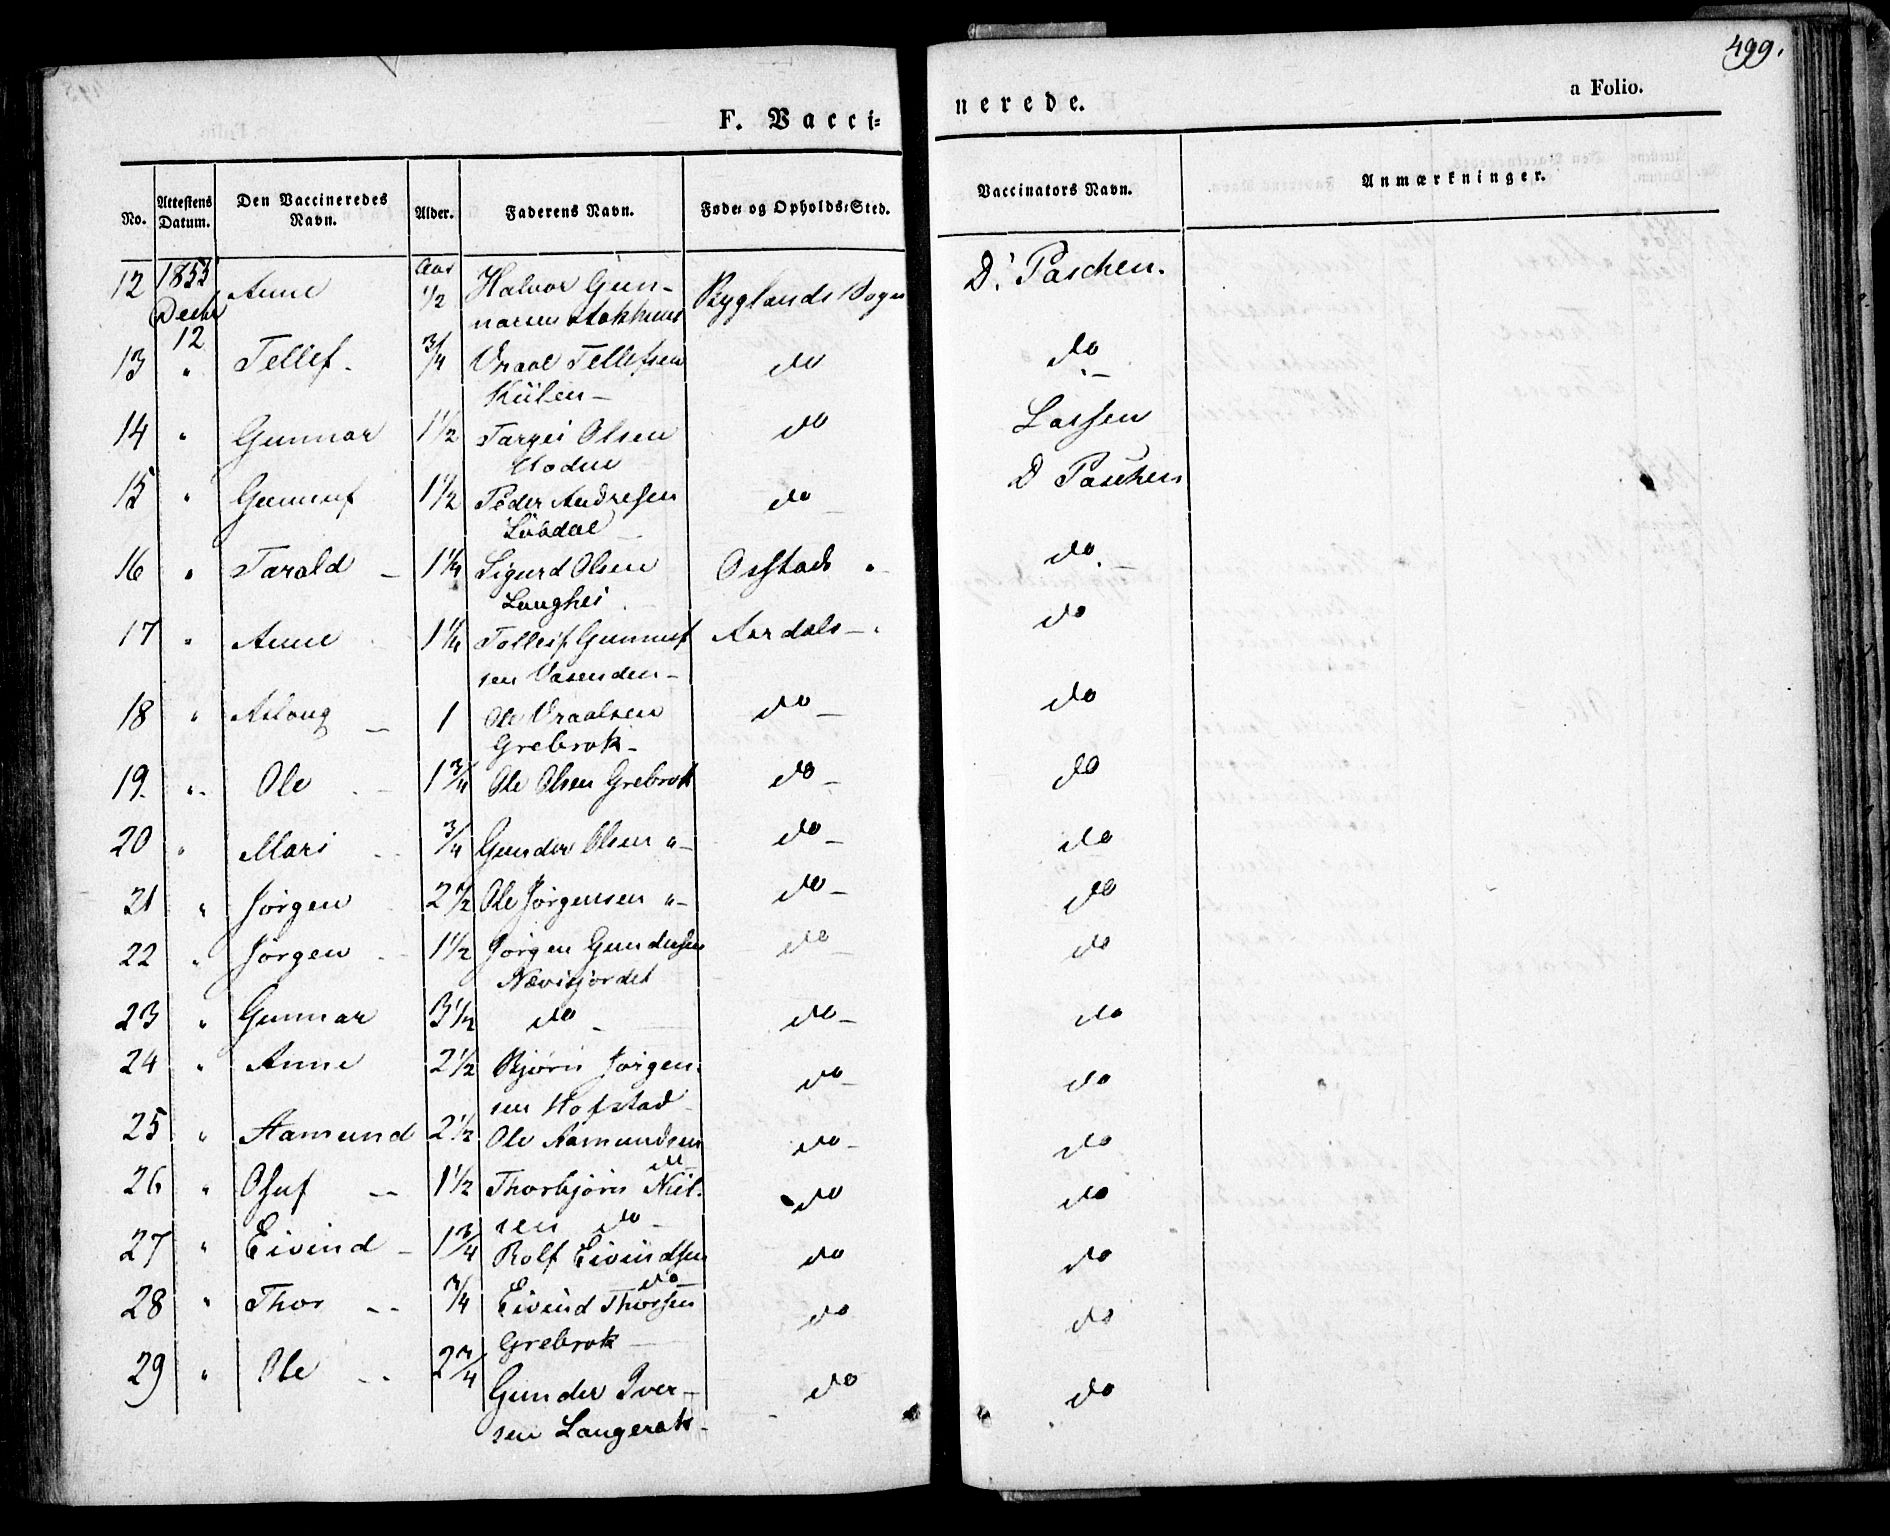 499.
F. Vacci=
nerede.
a Folio.
No.
Attestens Datum.
Den Vaccineredes Navn.
Alder.
Faderens Navn.
Føde- og Opholds-Sted.
Vaccinators Navn.
Anmærkninger.
12 1853 Decbr 12 Anne Aar 1/2 Halvor Gun- Byglands Sogn Dr Paschen.
13 " Tellef - 3/4 Vraal Tellefsen do do
14 " Gunnar 1 1/2 Targei Olsen do Lassen
15 " Gunnuf 1 1/2 Peder Andresen do D Paschen
Løvdal
16 " Tarald - 1 1/4 Sigurd Olsen Osstads " do -
Langhei
17 " Anne 1 1/4 Tolleif Gunnuf Aardals - " do
sen Vasenden -
18 " Aslaug - 1 Ole Vraalsen do - do
Grebrok -
19. " - Ole - 1 3/4 Ole Olsen Grebrok do - do
20 " Mari - 3/4 Gunder Olsen " - do - do
21 " Jørgen 2 1/2 Ole Jørgensen " - do - do
22 " Jørgen - 1 1/2 Jørgen Gundersen do - do
23 " Gunnar 3 1/2 do - do - do
24 " Anne 2 1/2 Bjørn Jørgen- do - do
sen Hofstad -
25 " Aamund 2 1/2 Ole Aamundsen do do - do
26 " Osuf - 1 1/2 Thorbjørn Niel- do do
sen do -
27 " Eivind - 1 3/4 Rolf Eivindsen do - do do
28 " Thor - 3/4 Eivind Thorsen do do
Grebrok -
29 " Ole - 2 3/4 Gunder Iver- do do
sen Langerak -